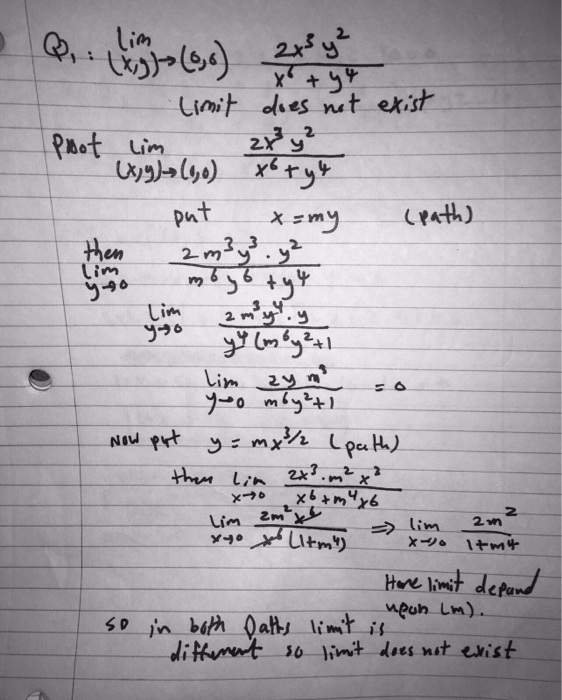 Q₁ : lim (x,y)→(0,0) 2x³y² / x⁶ + y⁴
Limit does not exist
Proof lim (x,y)→(0,0) 2x³y² / x⁶ + y⁴
put x = my (path)
then lim y→0 2m³y³ . y² / m⁶y⁶ + y⁴
lim y→0 2m³y⁴ . y / y⁴ (m⁶y²+1
lim y→0 2y m³ / m⁶y²+1 = 0
Now put y = mx^3/2 (path)
then lim x→0 2x³ . m² x³ / x⁶ + m⁴x⁶
lim x→0 2m²x⁶ / x⁶ (1+m⁴) ⇒ lim x→0 2m² / 1+m⁴
Here limit depand
upon (m).
so in both Paths limit is
different so limit does not exist